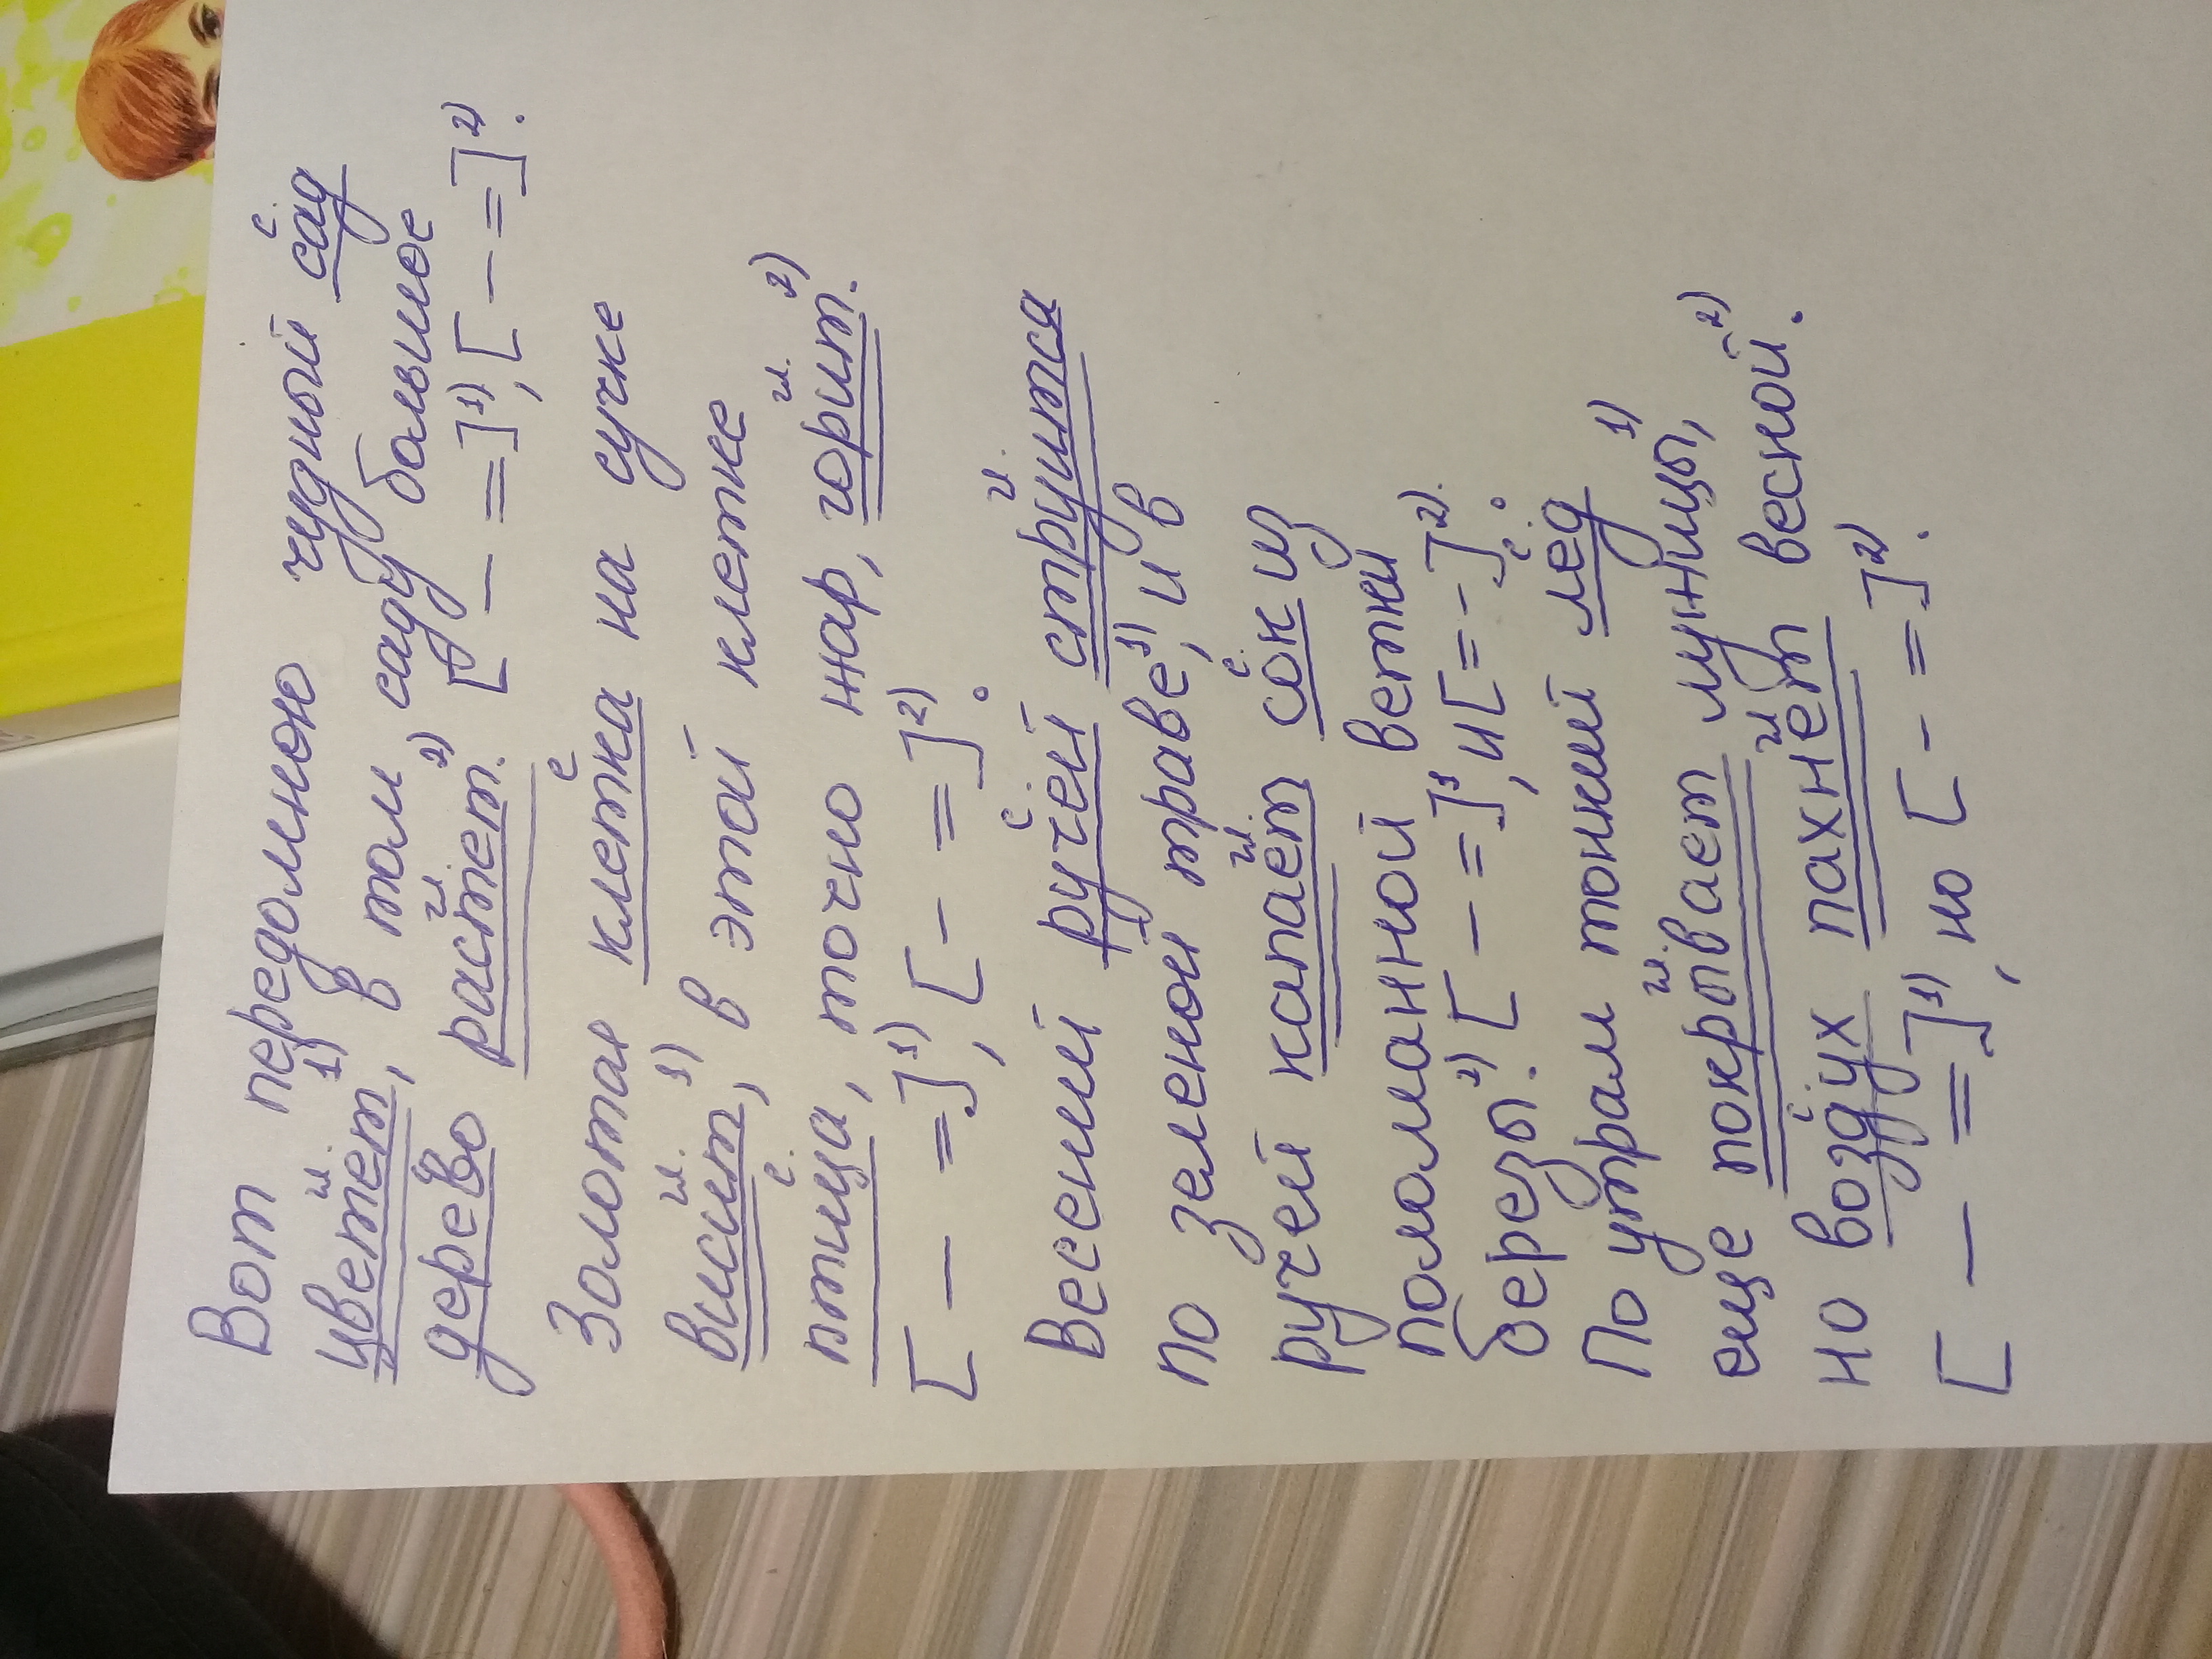 Вот передомною чудный сад
цветет,¹⁾ в том саду большое
дерево растет.²⁾ [ — = ]¹⁾, [ — = ]²⁾.
Золотая клетка на сучке
висит,¹⁾ в этой клетке
птица, точно жар, горит.²⁾
[ — = ]¹⁾, [ — = ]²⁾.
Весений ручей струится
по зеленой траве¹⁾, и в
ручей капает сок из
поломанной ветки
березы.²⁾ [ — = ]¹, и [ = — ]²⁾.
По утрам тонкий лед
еще покрывает лунищы,¹⁾
но воздух пахнет весной.²⁾
[ — = ]¹⁾, но [ — = ]²⁾.